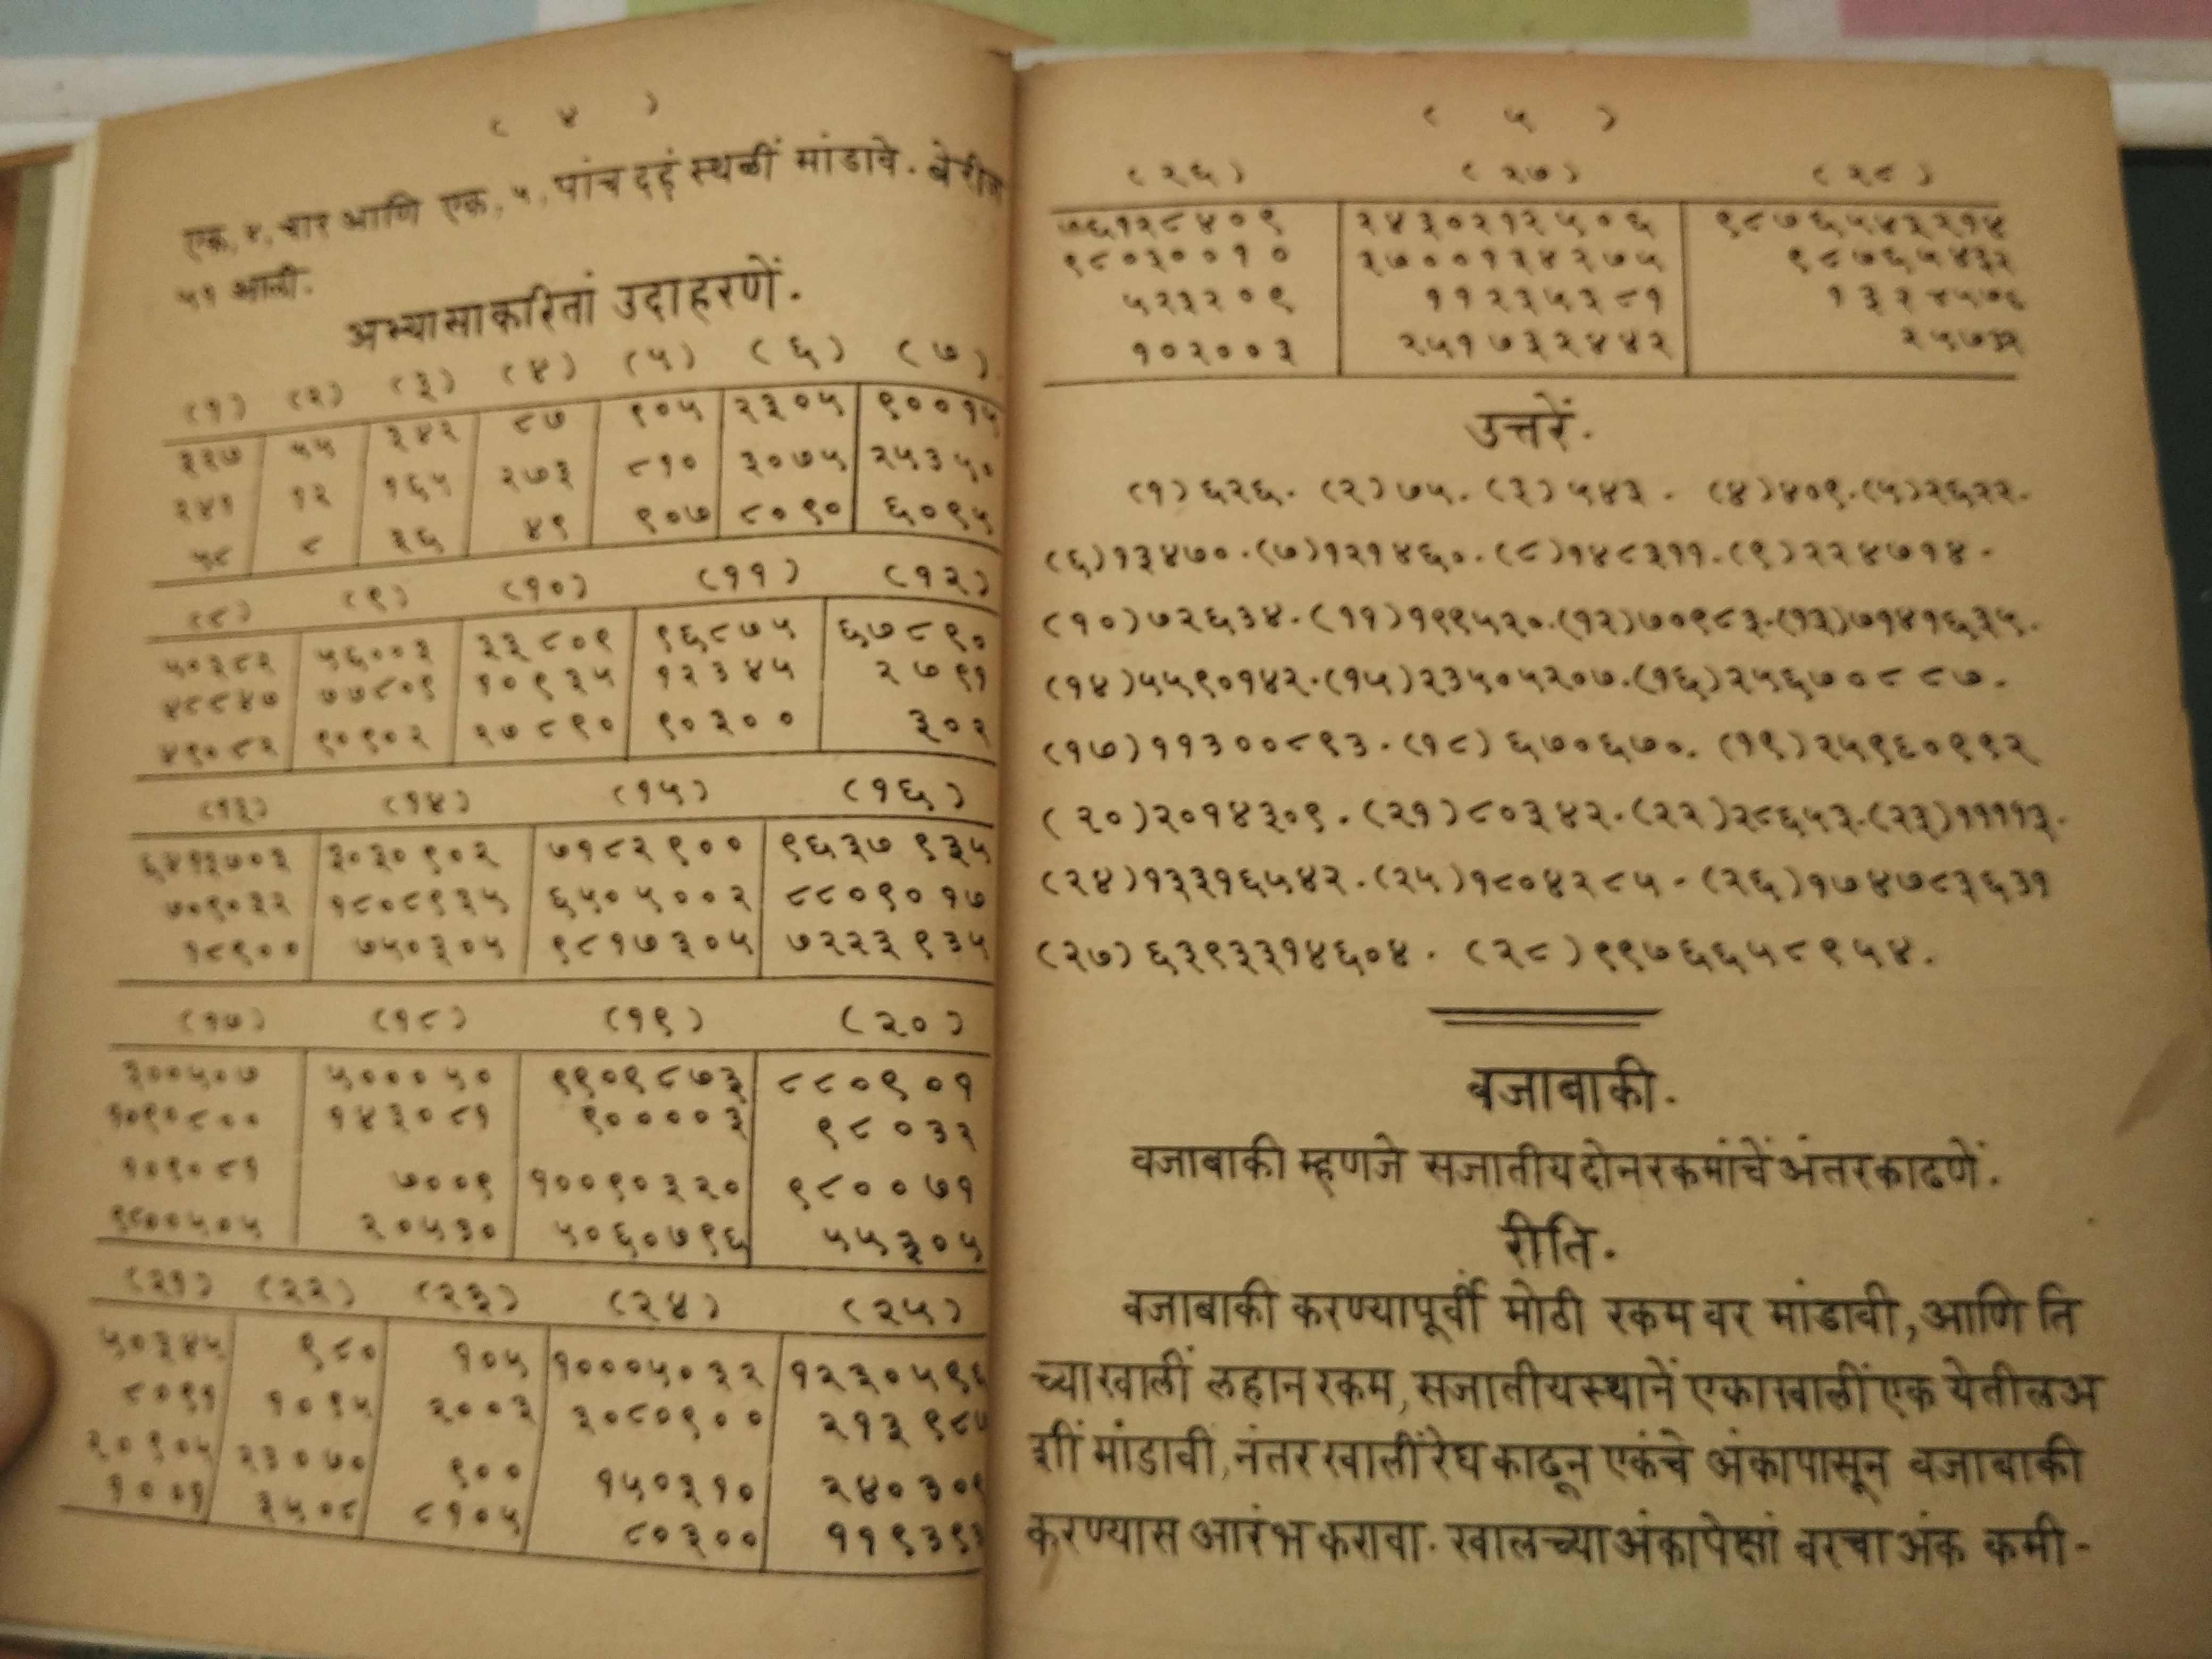 ( ४ )
एक, ४, चार आणि एक, ५, पांच दहं स्थळीं मांडावे. बेरीज
५१ आली.
अभ्यासाकरितां उदाहरणें.
(१) (२) (३) (४) (५) (६) (७)
३२७ ५५ ३४२ ८७ ९०५ २३०५ ९००१५
२४१ १२ १६५ २७३ ८१० ३०७५ २५३५०
५८ ८ ३६ ४९ ९०७ ८०९० ६०९५
(८) (९) (१०) (११) (१२)
५०३८२ ५६००३ ३३८०९ ९६८७५ ६७८९०
४८८४७ ७७८०९ १०९३५ १२३४५ २७९१
४९०८२ ९०९०२ २७८९० ९०३०० ३०२
(१३) (१४) (१५) (१६)
६४१३७०३ ३०३०९०२ ७१८२९०० ९६३७९३५
७०९०३२ १८०८९३५ ६५०५००२ ८८०९०१७
१८९०० ७५०३०५ ९८१७३०५ ७२२३९३५
(१७) (१८) (१९) (२०)
३००५०७ ५०००५० ९९०९८७३ ८८०९०१
१०९०८०० १४३०८१ ९००००३ ९८०३२
१०९०८१ ७००९ १००९०३२० ९८००७१
९८००५०५ २०५३० ५०६०७९६ ५५३०५
(२१) (२२) (२३) (२४) (२५)
५०३४५ ९८० १०५ १०००५०३२ १२३०५९६
८०९१ १०९५ २००३ ३०८०९०० २१३९८७
२०९०५ २३०७० ९०० १५०३१० २४०३०९
१००१ ३५०८ ८१०५ ८०३०० ११९३९३
( ५ )
(२६) (२७) (२८)
७६१२८४०९ २४३०२१२५०६ ९८७६५४३२१४
९८०३००१० ३७००१३४२७५ ९८७६५४३२
५२३२०९ ११२३५३८१ १३२४५७६
१०२००३ २५१७३२४४२ २५७३२
उत्तरें.
(१) ६२६. (२) ७५. (३) ५४३. (४) ४०९. (५) २६२२.
(६) १३४७०. (७) १२१४६०. (८) १४८३११. (९) २२४७१४.
(१०) ७२६३४. (११) १९९५२०. (१२) ७०९८३. (१३) ७१४१६३५.
(१४) ५५९०१४२. (१५) २३५०५२०७. (१६) २५६७०८८७.
(१७) ११३००८९३. (१८) ६७०६७०. (१९) २५९६०९९२
(२०) २०१४३०९. (२१) ८०३४२. (२२) २८६५३. (२३) ११११३.
(२४) १३३१६५४२. (२५) १८०४२८५. (२६) १७४७८३६३१
(२७) ६३९३३१४६०४. (२८) ९९७६६५८९५४.
वजाबाकी.
वजाबाकी म्हणजे सजातीय दोन रकमांचें अंतर काढणें.
रीति.
वजाबाकी करण्यापूर्वी मोठी रकम वर मांडावी, आणि ति
च्याखालीं लहान रकम, सजातीयस्थानें एकाखालीं एक येतील अ
शीं मांडावी, नंतर खालीं रेघ काढून एकंचे अंकापासून वजाबाकी
करण्यास आरंभ करावा. खालच्या अंकापेक्षां वरचा अंक कमी-